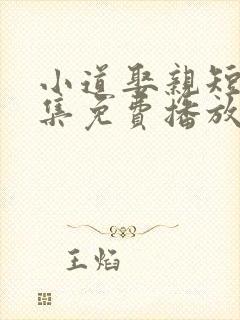 小道娶親短
集免費播放
王焰